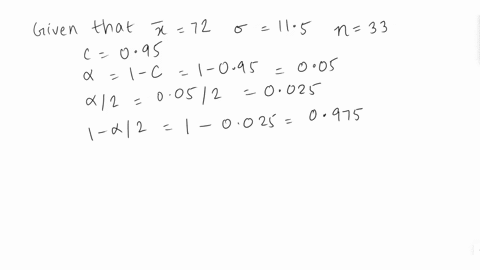 Given that x̄ = 72 σ = 11.5 n = 33
C = 0.95
α = 1 - C = 1 - 0.95 = 0.05
α/2 = 0.05/2 = 0.025
1 - α/2 = 1 - 0.025 = 0.975